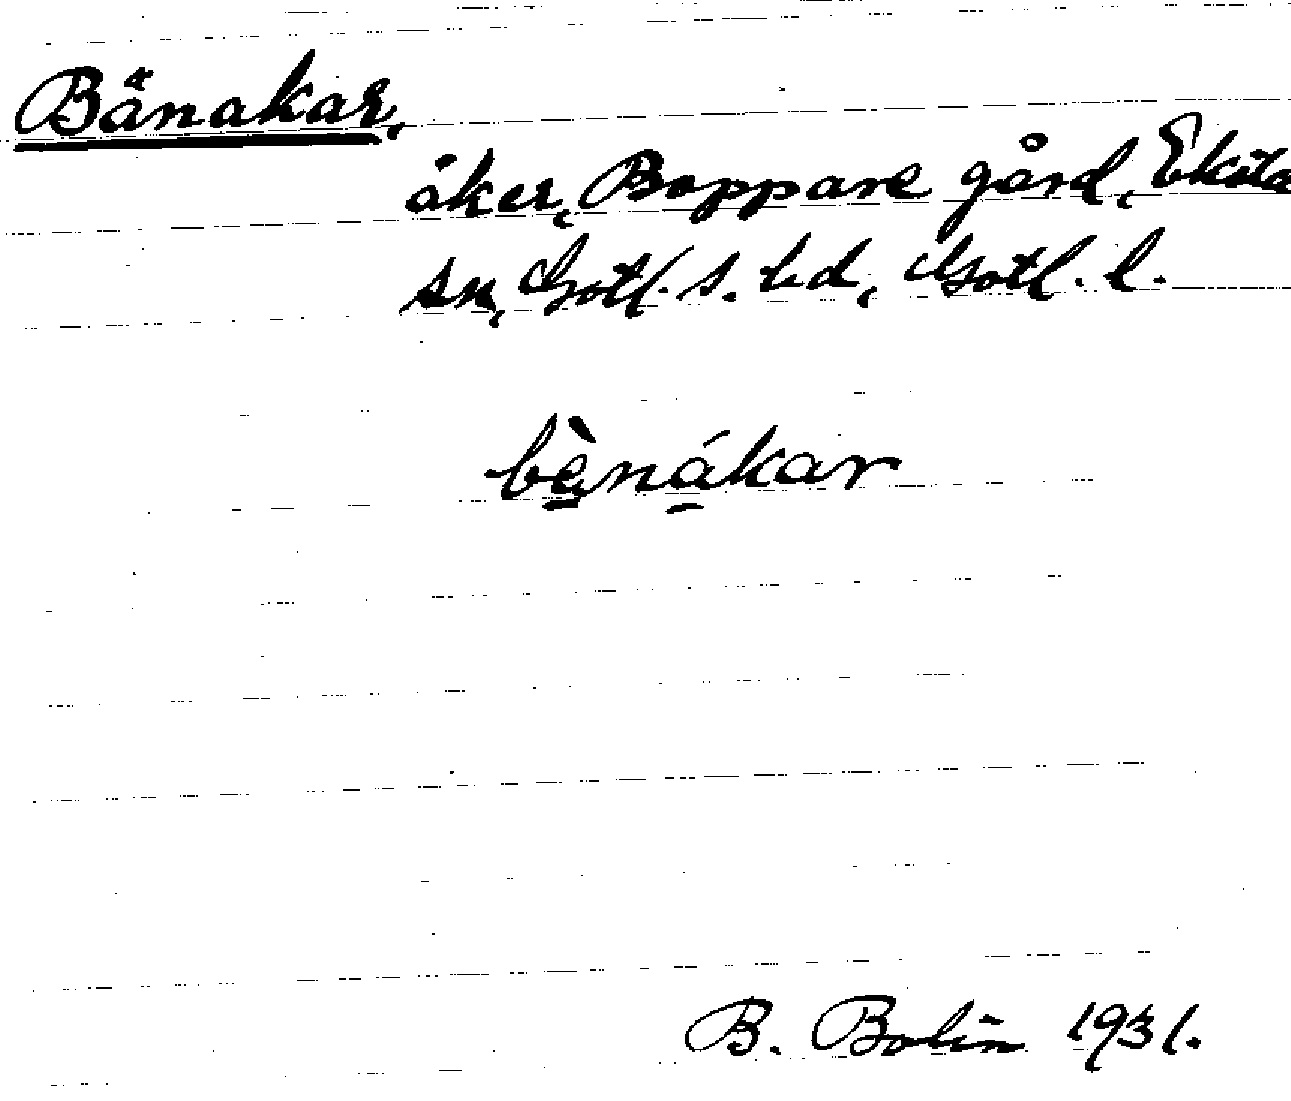 Bänakar,
åker, Boppare gård, Eksta
sn, Gotl. s. hd, Gotl. l.
bènákar
B. Bolin 1931.